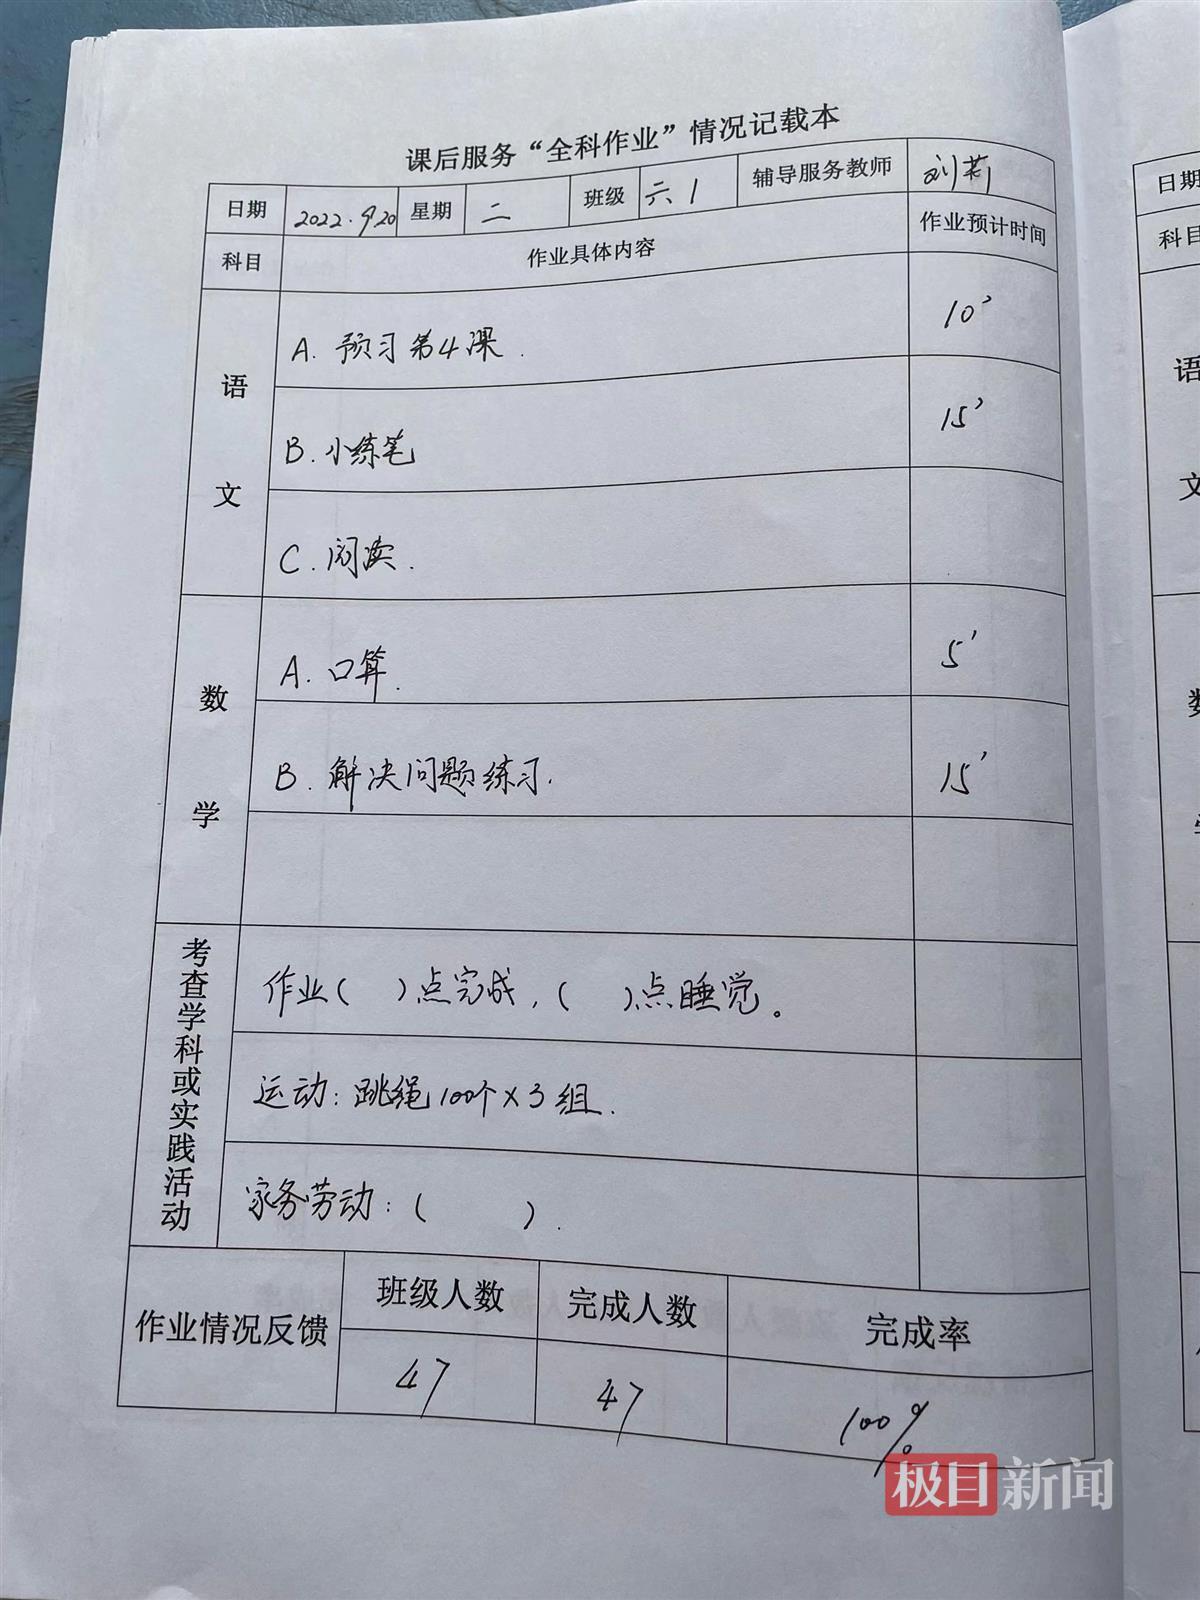 课后服务“全科作业”情况记载本
日期 2022.9.20 星期 二 班级 六1 辅导服务教师 刘莉
科目 作业具体内容 作业预计时间
语文
A. 预习第4课. 10'
B. 小练笔 15'
C. 阅读.
数学
A. 口算. 5'
B. 解决问题练习. 15'
考查学科或实践活动
作业( )点完成,( )点睡觉。
运动:跳绳100个×3组.
家务劳动:( ).
作业情况反馈
班级人数 完成人数 完成率
47 47 100%
极目新闻
日期
科目
语
文
数
学